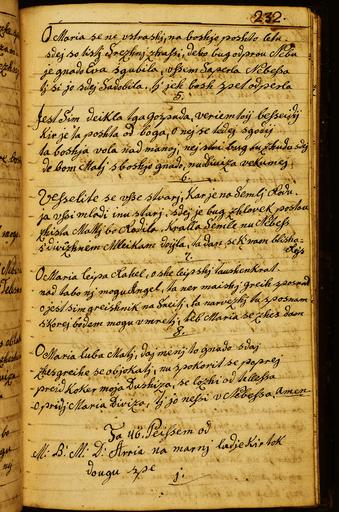 232.
O Maria se ne vstrashi, na boshjo poshto leta
sdej so tisti srezhni zhassi, deko bug odprou Neba
je gnado Eva sgubila, vssem Saperla Nebessa
ti si jo sdej Sadobila. ti jek bosh spet odperla
5.
Jest Sim deikla tga Gospuda, veriem tvoj bessedi
Kier je ta poshta od boga, O nej se tedej sgodij
ta boshja vola nad manoj, nej stui bug
de bom Mati s boshjo gnado, nu Diviza vekumej
6.
Vesselite se vsse stvari, Kar je na Semli
ja vssi mladi inu stari. sdej je bug zhlovek postou
zhista Mati bo Rodila. Kralla Semle nu Nebess
s divizhnem Mleikam dojila, ta dan sek nam blisha
7.
O Maria leipa Rahel, oshe leipshi taushenkrat
nad tabo nej mogu Angel, ta ner maishi greih sposnat
o jest sim greishnik na Sveiti, ta narvezhi ta sposnam
skorej bodem mogu vmreti, keb Maria se zhes dam
8.
O Maria luba Mati, daj meni to gnado sdaj
zhes greihe se objokati, nu spokorit se poprej
preid Koker moja Dushiza, se lozhi od tellessa
o pridi Maria Diviza, ti jo nessi v Nebessa. Amen
Ta 46. Peissem od
M: B: M: D: Arria na marnj ladje kir tok
dougu spe
1.